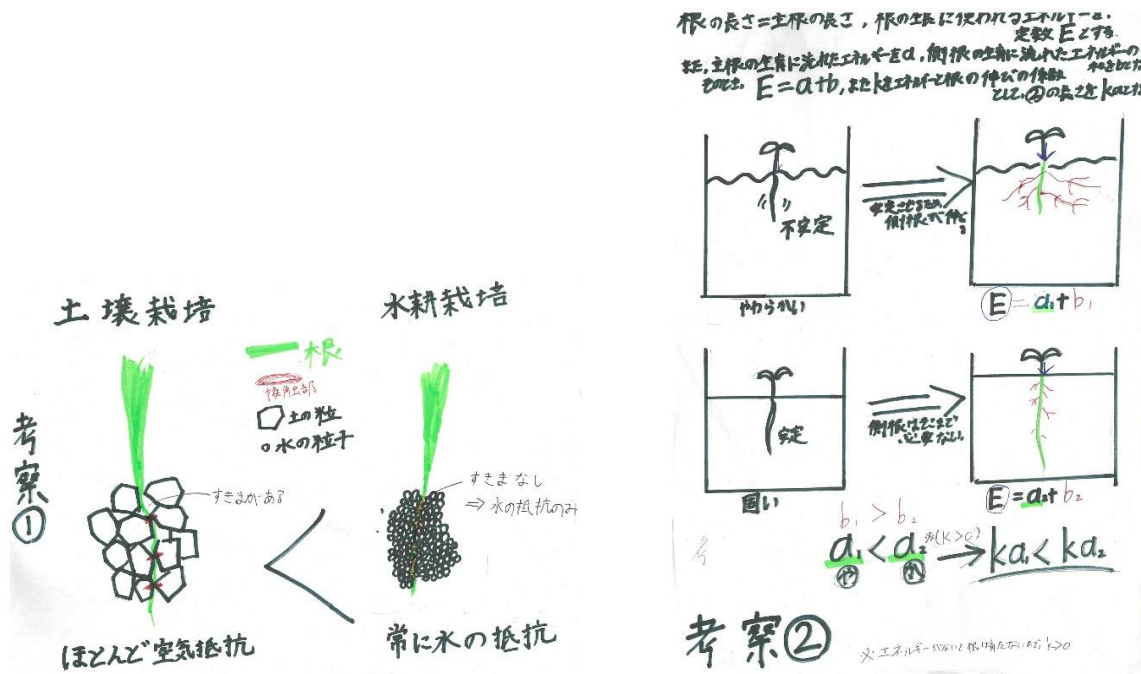 土壌栽培
水耕栽培
根
接触部
土の粒
水の粒子
考察①
すきまがある
すきまなし
⇒水の抵抗のみ
<
ほとんど空気抵抗
常に水の抵抗
根の長さ=主根の長さ,根の生長に使われるエネルギーを,
定数Eとする.
また,主根の生育に流れたエネルギーをa,側根の生育に流れたエネルギーの
E=a+b,またkをエネルギーと根の伸びの係数
として,②の長さをkaと
不安定
安定させるため
側根が伸びる
やわらかい
E=a₁+b₁
安定
側根はそこまで
必要ない
固い
E=a₂+b₂
b₁>b₂
a₁<a₂ ※(k>0) → ka₁<ka₂
考察②
※エネルギーがないと根は育たないので,k>0